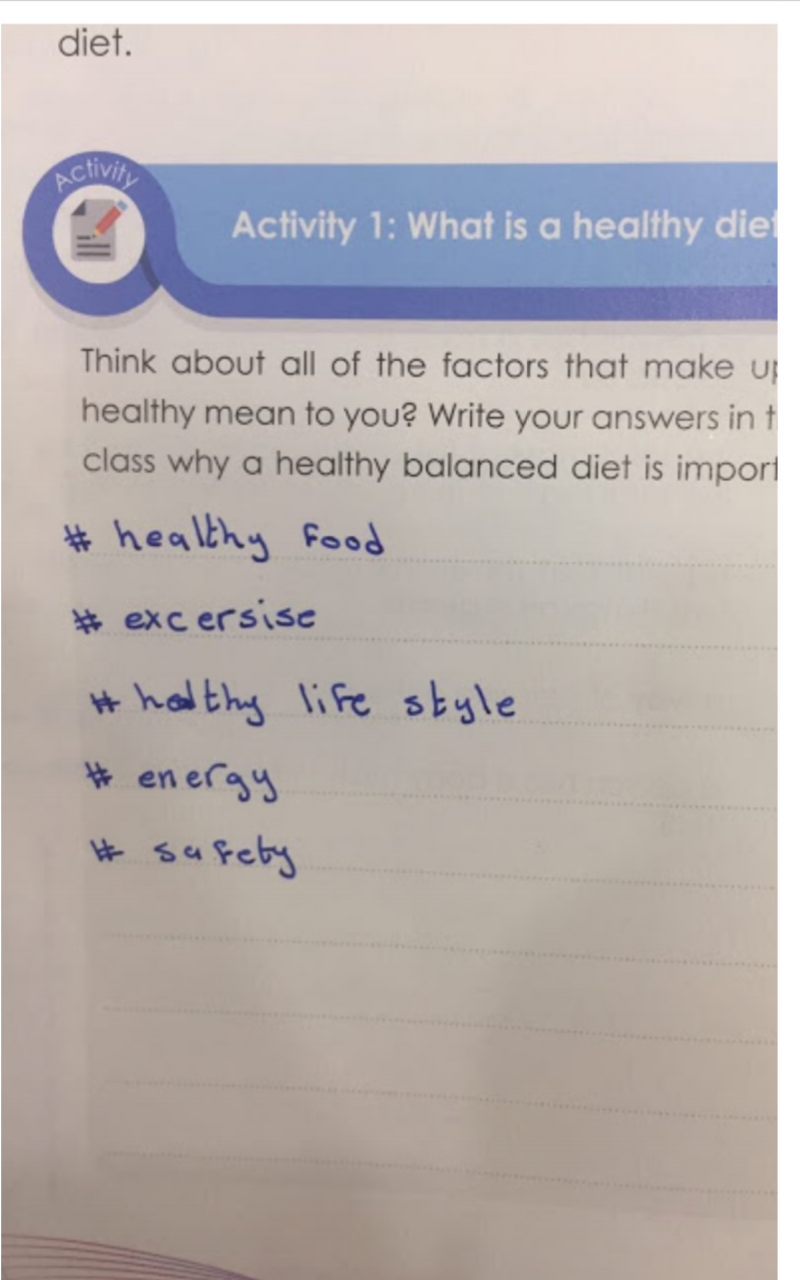 diet.
Activity
Activity 1: What is a healthy diet
Think about all of the factors that make up
healthy mean to you? Write your answers in t
class why a healthy balanced diet is import
# healthy food
# excersise
# halthy life style
# energy
# safety